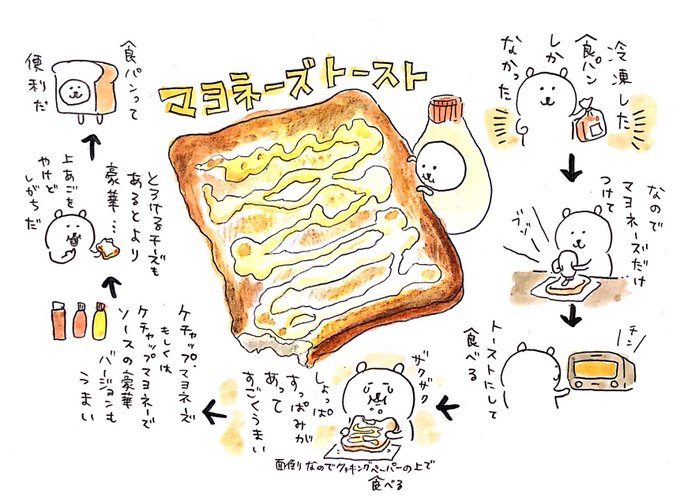 マヨネーズトースト
冷凍した
食パン
しか
なかった
なので
マヨネーズだけ
つけて
ブブ
チン
トーストにして
食べる
ザクザク
しょっぱ
すっぱみが
あって
すごくうまい
面倒なのでクッキングペーパーの上で
食べる
ケチャップ、マヨネーズ
もしくは
ケチャップマヨネーズ
ソースの豪華
バージョンも
うまい
とろけるチーズも
あるとより
豪華…
上あごを
やけど
しがちだ
食パンって
便利だ